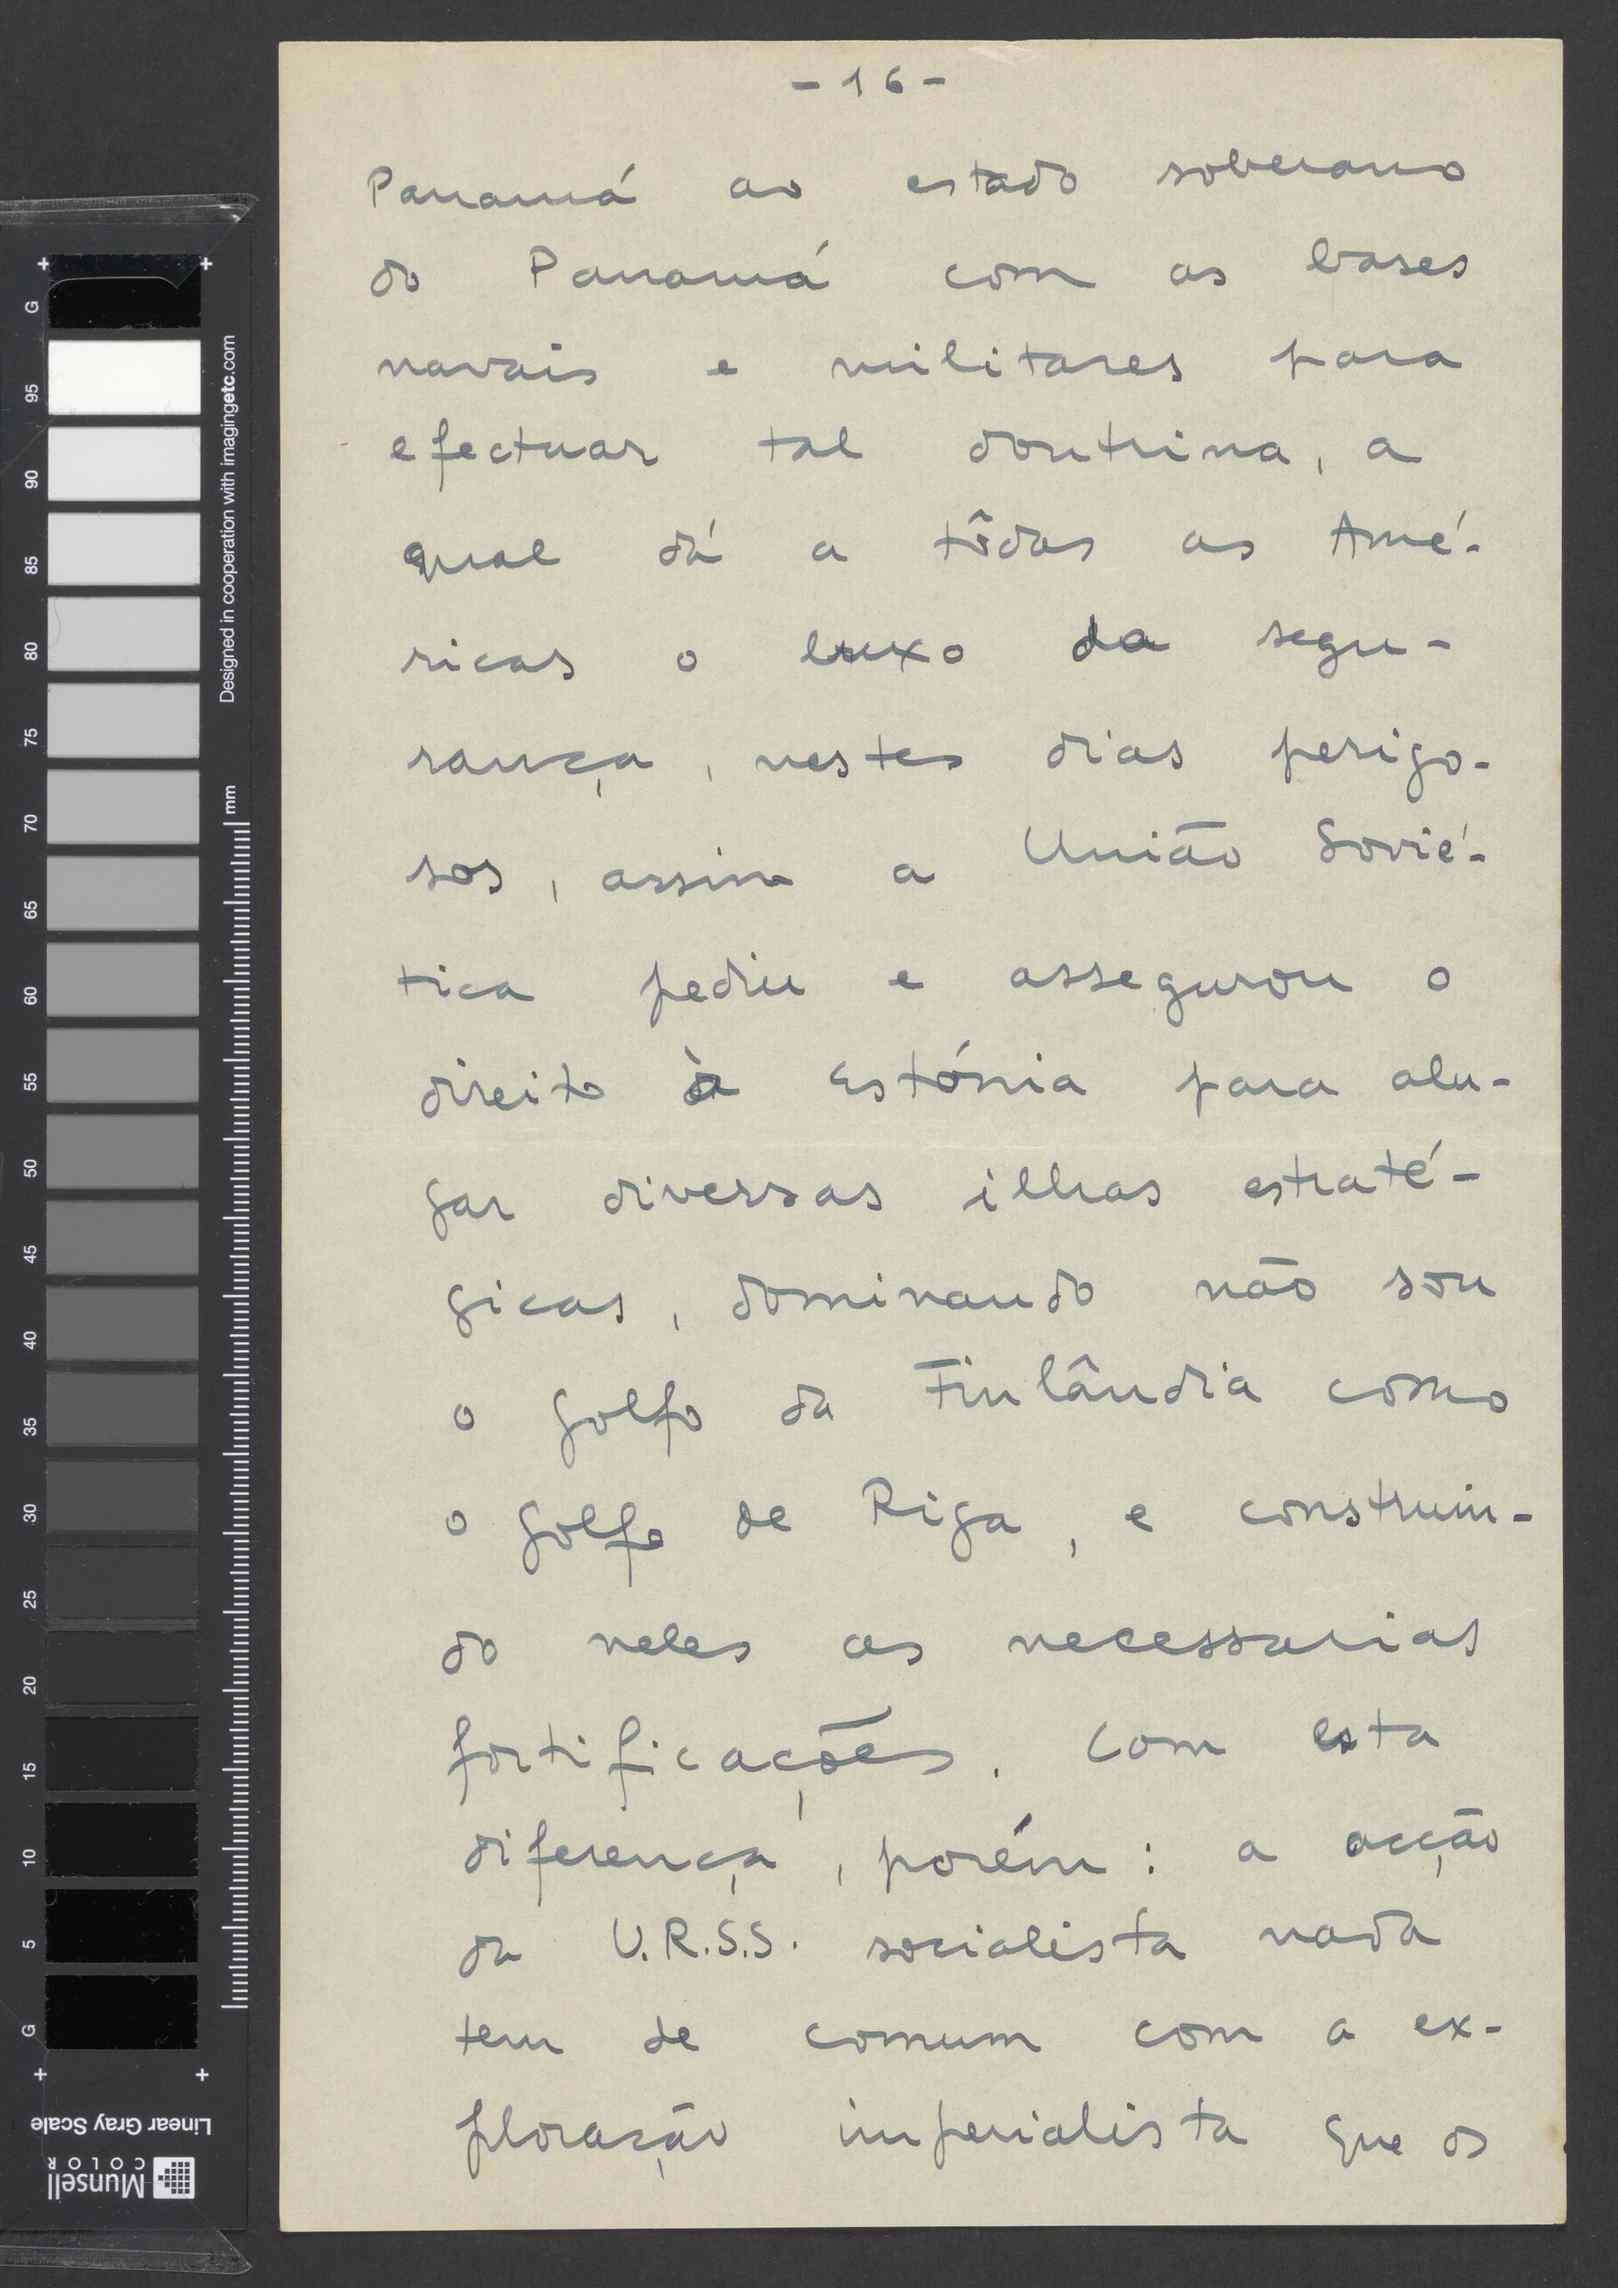 - 16 -
Panamá ao estado soberano
do Panamá com as bases
navais e militares para
efectuar tal doutrina, a
qual dá a tôdas as Amé-
ricas o luxo da segu-
rança, nestes dias perigo-
sos, assim a União Sovié-
tica pediu e assegurou o
direito à Estónia para alu-
gar diversas ilhas estraté-
gicas, dominando não sou
o golfo da Finlândia como
o golfo de Riga, e construin-
do neles as necessarias
fortificações. Com esta
diferença, porém: a acção
da U.R.S.S. socialista nada
tem de comum com a ex-
ploração imperialista que os
G
95
90
85
80
75
70
65
60
55
50
45
40
35
30
25
20
15
10
5
G
Designed in cooperation with imagingetc.com
mm
Linear Gray Scale
Munsell
COLOR